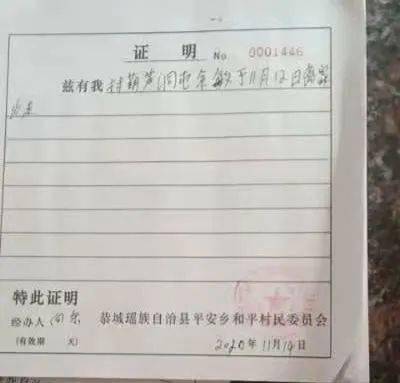 证 明 No 0001446
兹有我村葫芦洞屯余敏于11月12日离家
出走
特此证明
经办人
恭城瑶族自治县平安乡和平村民委员会
(有效期 天)
2020年11月14日